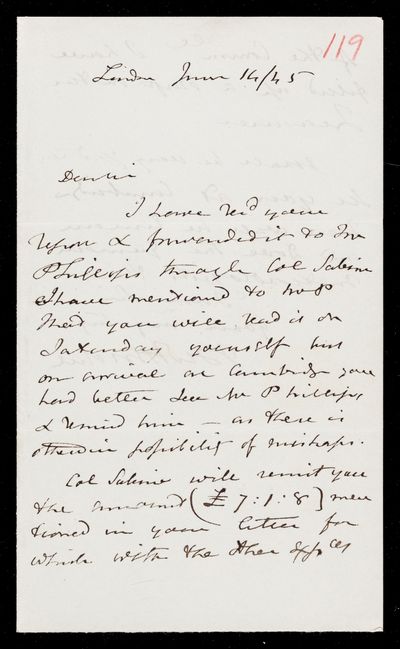 119
London June 14/45
Dear Sir
I have rec'd your
report & forwarded it to Mr
Phillips through Col Sabine
I have mentioned to Mr P
that you will read it on
Saturday yourself but
on arrival at Cambridge you
had better see Mr Phillips
& remind him — as there is
otherwise possibility of mishaps.
Col Sabine will remit you
the amount (£7:1:8) men
tioned in your letter for
which with the other Exp.ces